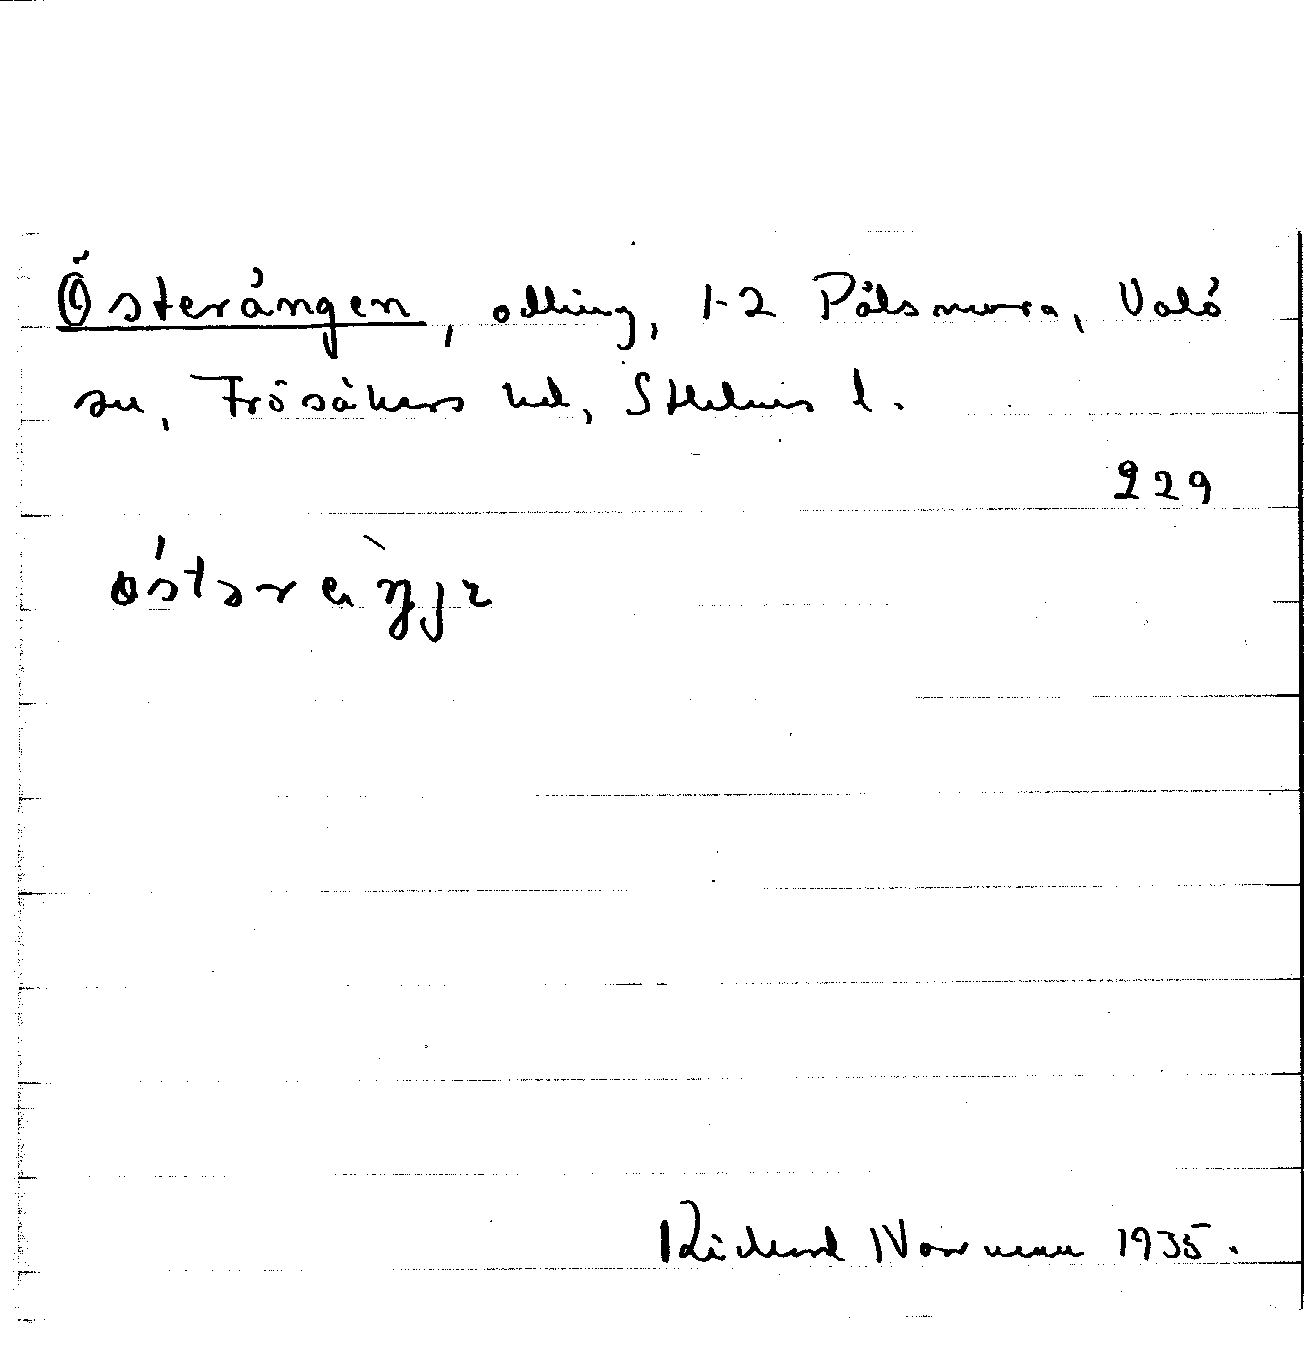 Österängen, odling, 1-2 Pålsmora, Valö
sn, Frösåkers hd, Sthlms l.
229
Richard Norrman 1935.